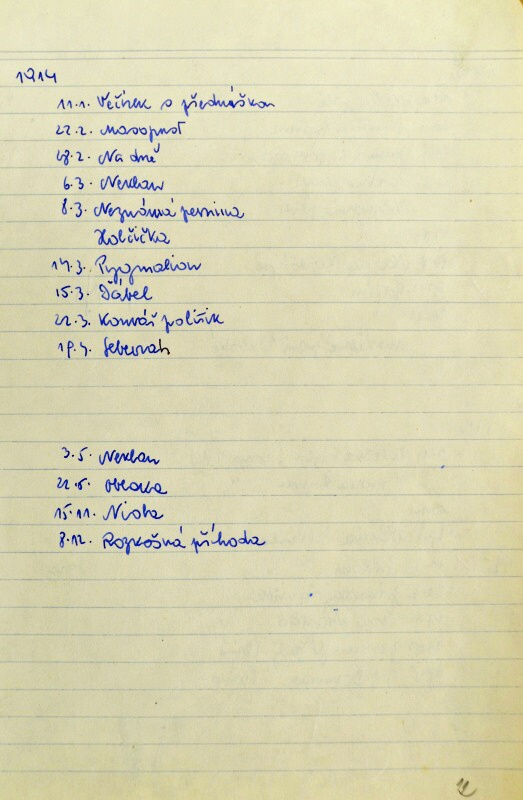 1914
11.1. Večírek s přednáškou
22.2. Masopust
28.2. Na dně
6.3. Neklan
8.3. Neznámá pevnina
Holčička
14.3. Pygmalion
15.3. Ďábel
22.3. Konváš politik
19.4. Sebevrah
3.5. Neklan
21.5. Oblaka
15.11. Nioba
8.12. Rozkošná příhoda